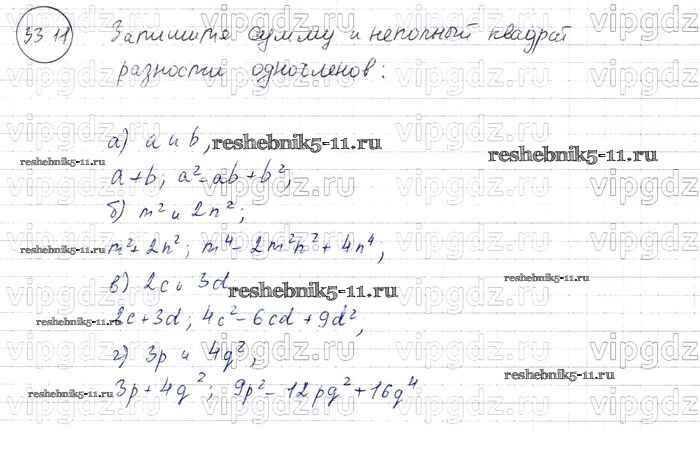 33 11 Запишите сумму и неполный квадрат
разности одночленов:
а) a и b,
a+b; a²-ab+b²;
б) m² и 2n²;
m²+2n²; m⁴-2m²n²+4n⁴;
в) 2c и 3d
2c+3d; 4c²-6cd+9d²;
г) 3p и 4q²;
3p+4q²; 9p²-12pq²+16q⁴
reshebnik5-11.ru
reshebnik5-11.ru
reshebnik5-11.ru
reshebnik5-11.ru
reshebnik5-11.ru
reshebnik5-11.ru
reshebnik5-11.ru
reshebnik5-11.ru
reshebnik5-11.ru
vipgdz.ru